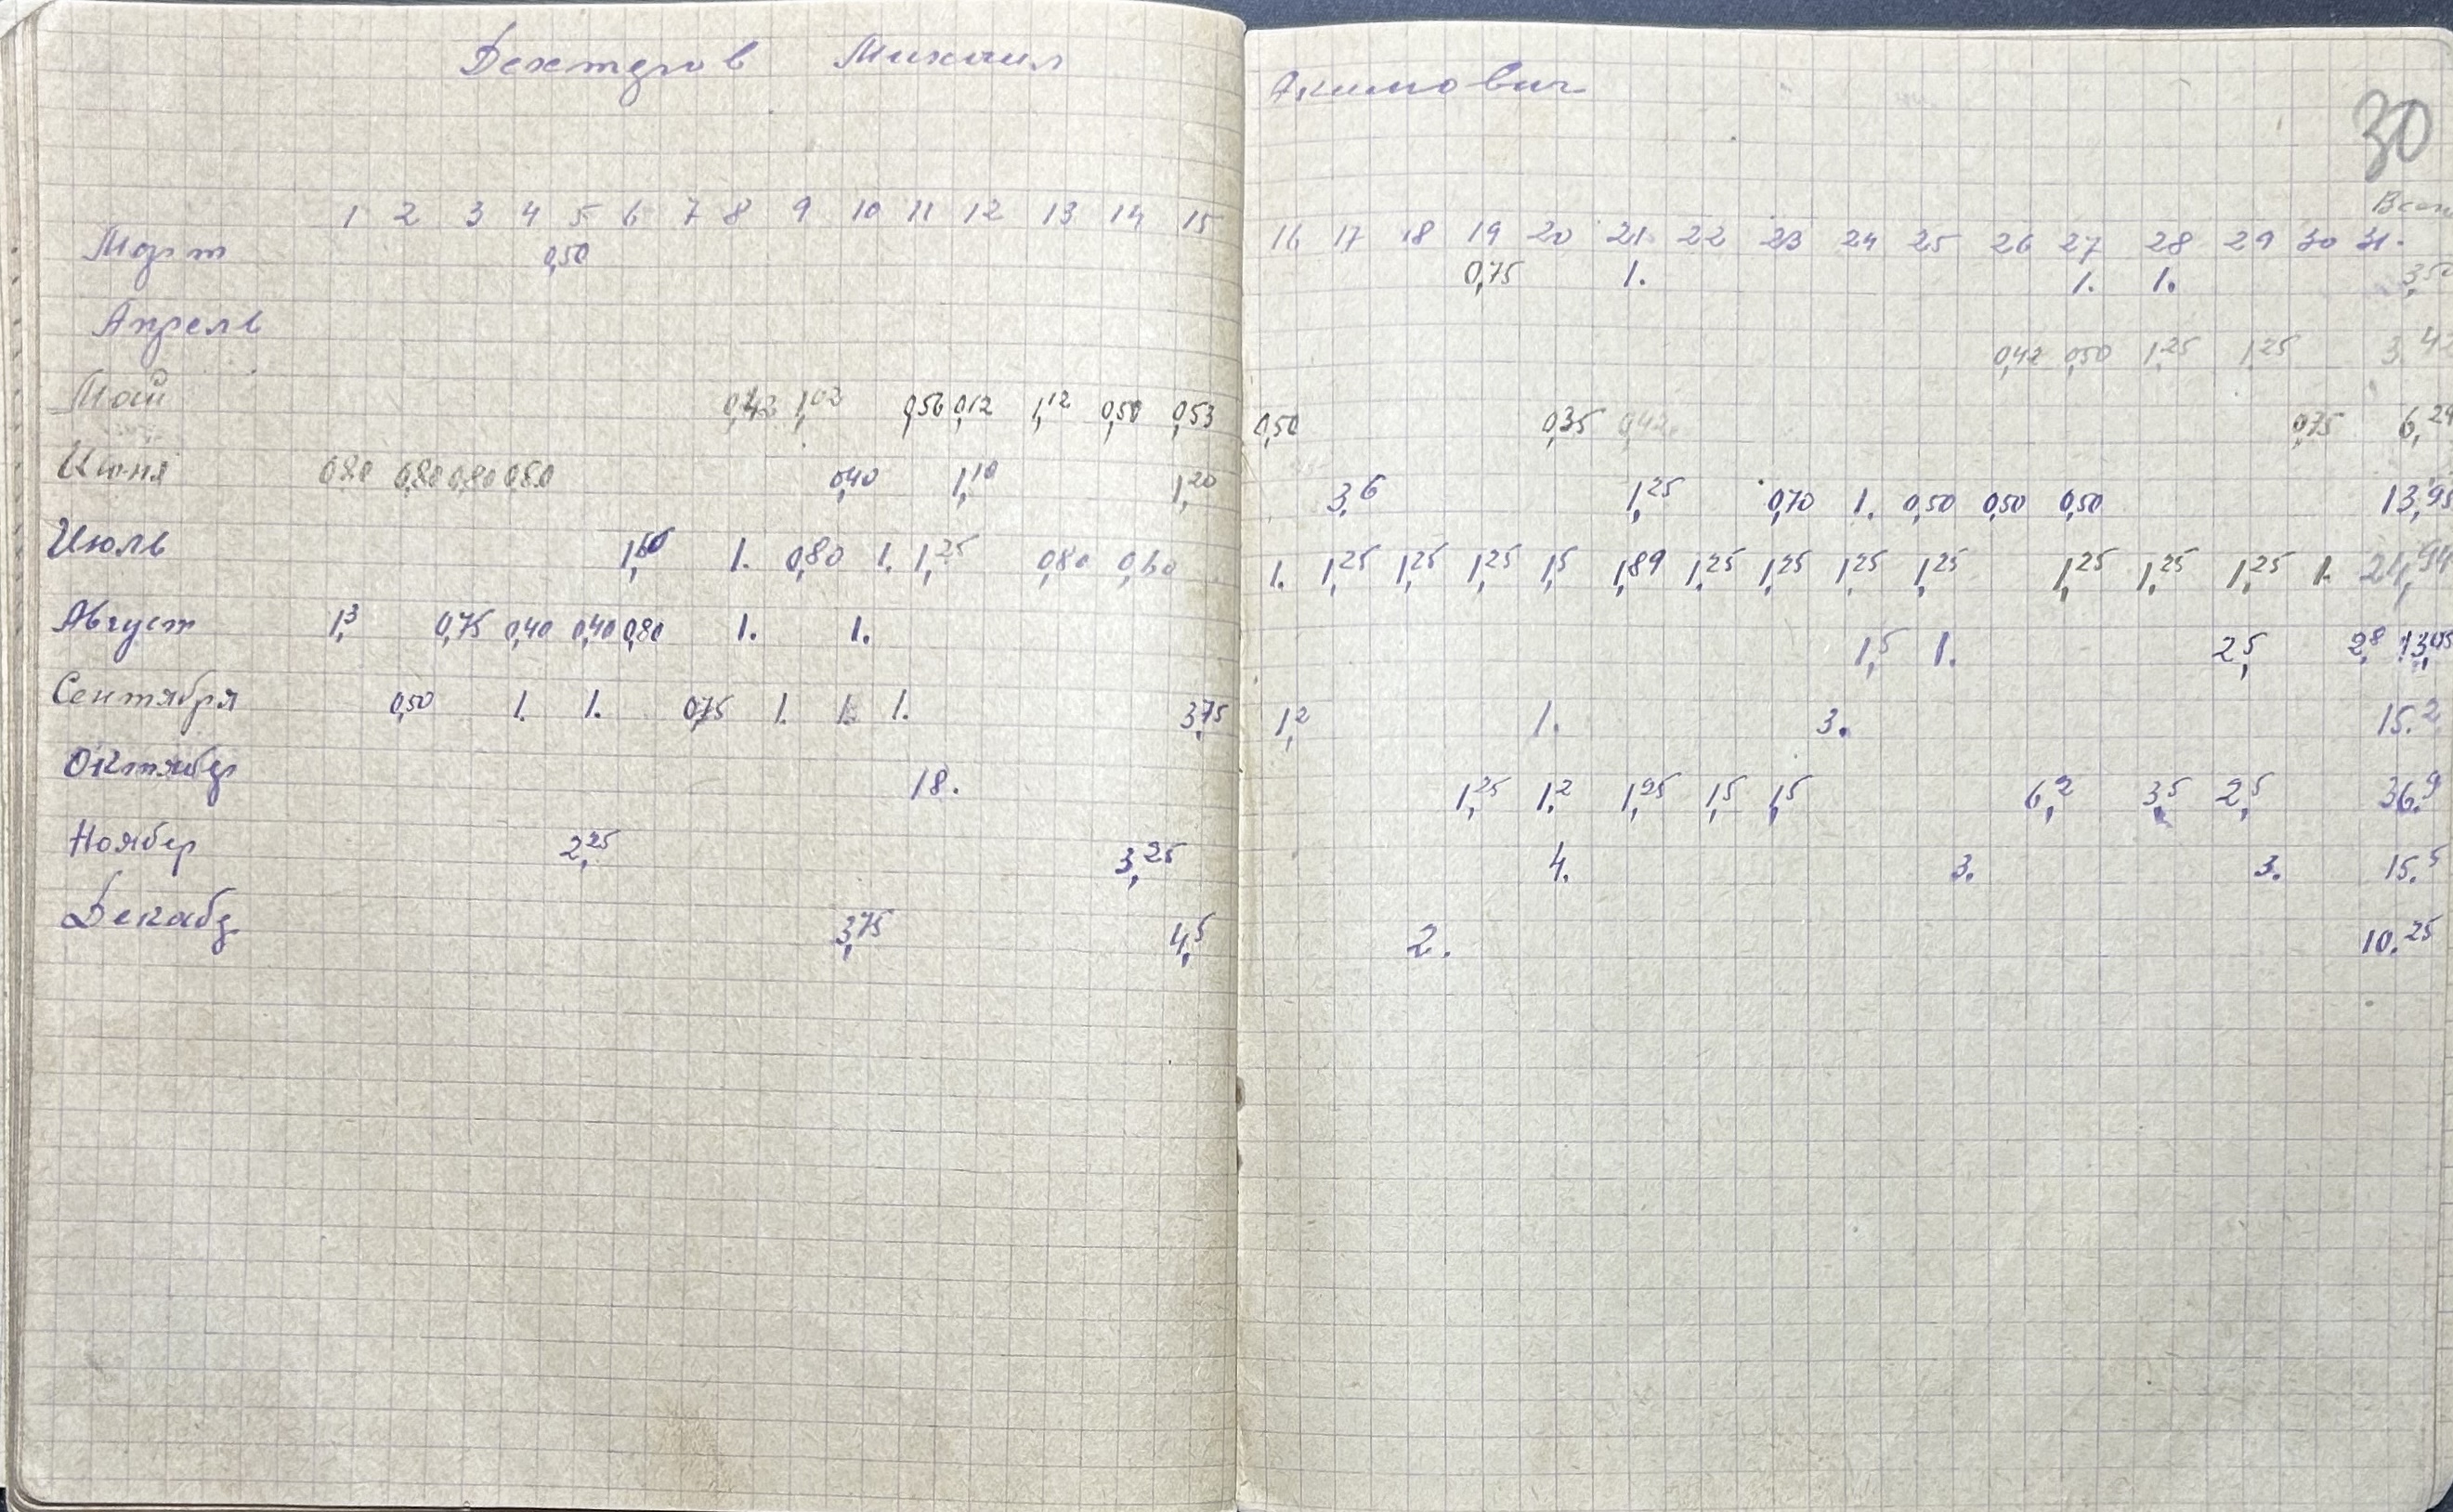 Дехтерев Михаил Акимович
30
Всего
1 2 3 4 5 6 7 8 9 10 11 12 13 14 15 16 17 18 19 20 21 22 23 24 25 26 27 28 29 30 31.
Март 0,50 0,75 1. 1. 1. 3,50
Апрель 0,42 0,50 1,25 1,25 3,42
Май 0,42 1,02 0,56 0,12 1,12 0,50 0,53 0,50 0,35 0,42 0,75 6,29
Июня 0,80 0,80 0,80 0,50 0,40 1,10 1,20 3,6 1,25 0,70 1. 0,50 0,50 0,50 13,95
Июль 1,60 1. 0,80 1. 1,25 0,80 0,60 1. 1,25 1,25 1,25 1,5 1,89 1,25 1,25 1,25 1,25 1,25 1,25 1,25 1. 24,94
Август 1,3 0,75 0,40 0,40 0,80 1. 1. 1,5 1. 2,5 2,8 13,45
Сентября 0,50 1. 1. 0,75 1. 1. 1. 3,75 1,2 1. 3. 15.2
Октябр 18. 1,25 1,2 1,25 1,5 1,5 6,2 3,5 2,5 36.9
Ноябер 2,25 3,25 4. 3. 3. 15.5
Декабр 3,75 4,5 2. 10.25